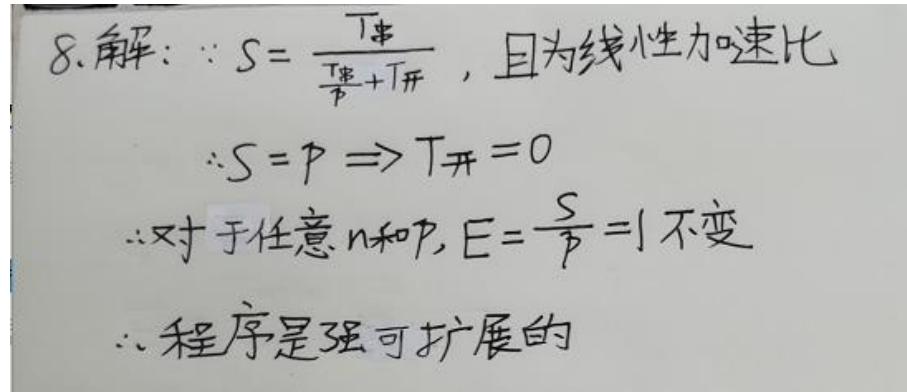 8.解: ∵ S = T串 / (T串/p + T开) , 且为线性加速比
∴S = p ⇒ T开 = 0
∴对于任意n和p, E = S/p = 1 不变
∴ 程序是强可扩展的